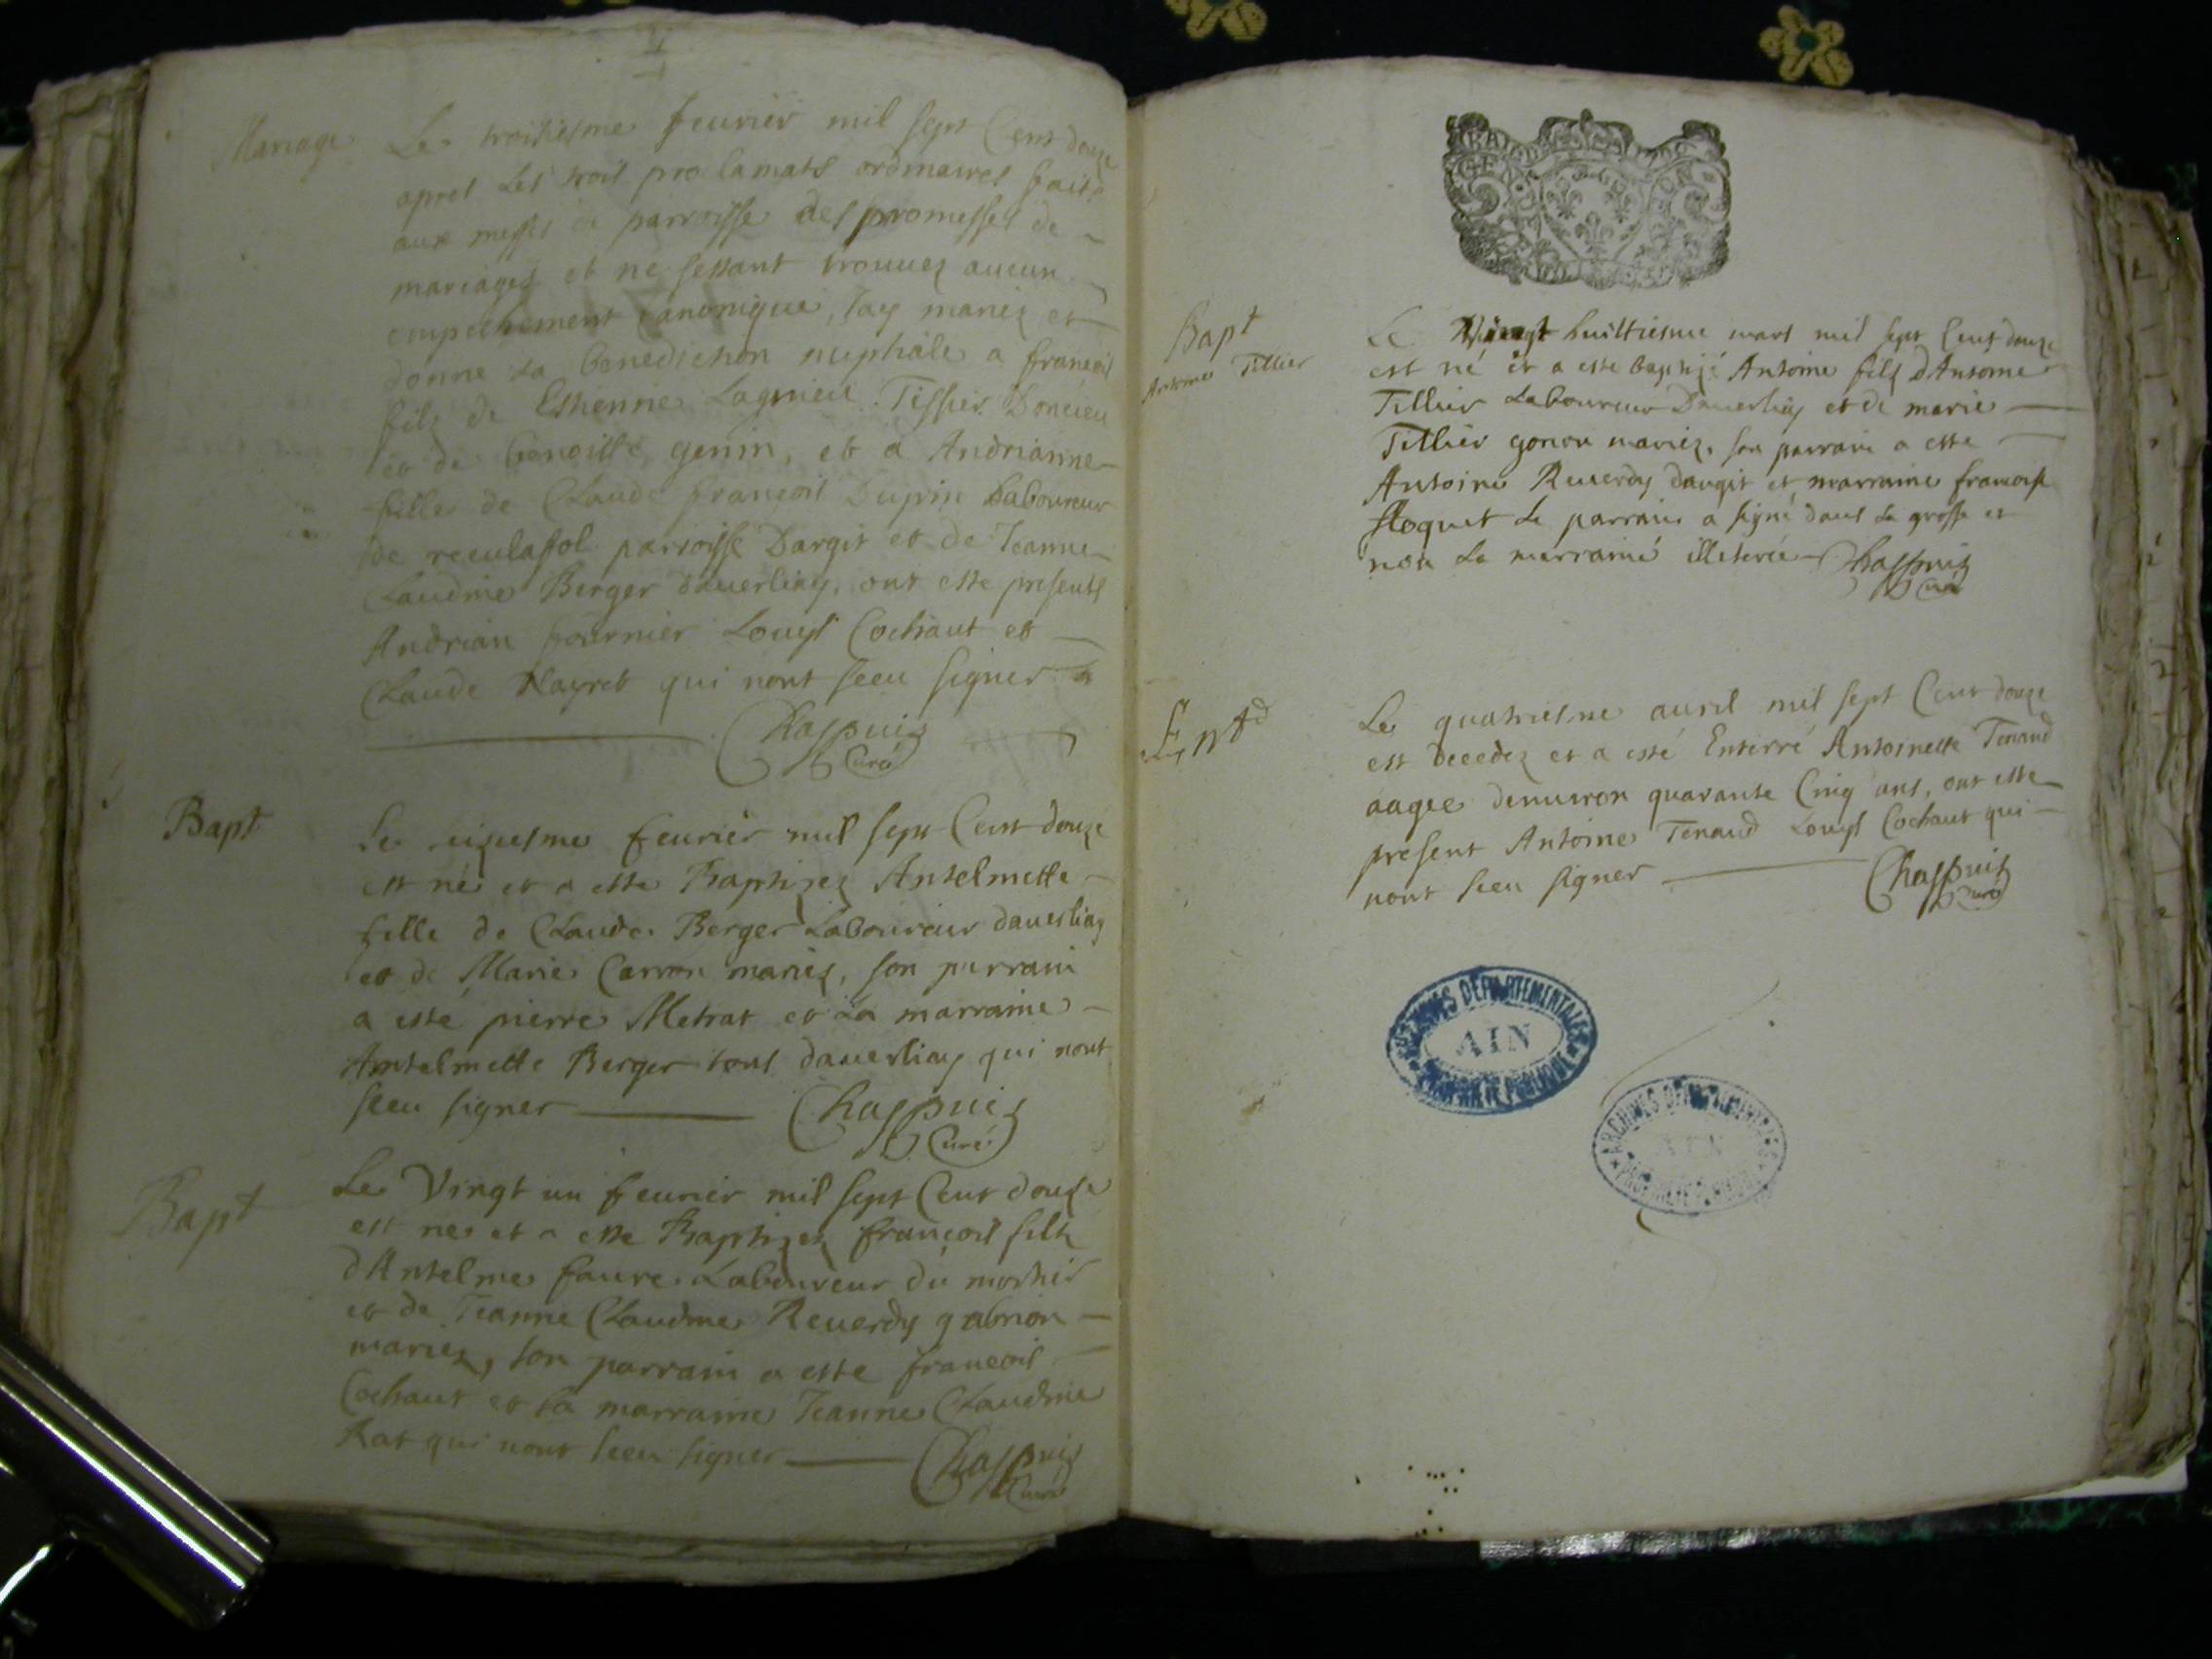 Mariage
Le troisiesme feurier mil sept Cent douze
apres Les trois proclamats ordinaires faits
aux messes de parroisse des promesses de
mariages et ne sestant trouuez aucun
empechement Canonique, Jay mariez et
donne La benediction nuptiale a francois
fils de Estienne Lagnieu Tissier
et de benoiste genin, et a Andrianne
fille de Claude françois Dupin Laboureur
de reculafol parroisse Dargit et de Jeanne
Claudine Berger dauerliay, ont este presents
Andrian fournier Louys Cochaut et
Claude Nayret qui nont sceu signer
Chappuis
Curé
Bapt
Le feurier mil sept Cent douze
est né et a este Baptizez Antelmette
fille de Claude Berger Laboureur dauerliay
et de Marie Carron mariez, son parrain
a esté pierre Metrat et La marraine
Antelmette Berger tous dauerliay qui nont
sceu signer Chappuis
Curé
Bapt
Le Vingt un feurier mil sept Cent douze
est ne et a este Baptizez françois fils
dAntelme faure Laboureur du
et de Jeanne Claudine Reuerdy gabrion
mariez, son parrain a este francois
Cochaut et La marraine Jeanne Claudine
Rat qui nont sceu signer Chappuis
Curé
Bapt
Antoine Tillier
Le Vingt huittiesme mars mil sept Cent douze
est né et a este baptizé Antoine fils dAntoine
Tillier Laboureur Dauerliay et de marie
Tillier gonon mariez, son parrain a este
Antoine Reuerdy dargit et marraine francoise
floquet Le parrain a signé dans La grosse et
non La marraine illiterée Chappuis
Curé
Ent
Le quatriesme auril mil sept Cent douze
est decedez et a esté Enterré Antoinette Tenand
aagee denuiron quarante Cinq ans, ont este
present Antoine Tenand Louys Cochaut qui
nont sceu signer Chappuis
Curé
ARCHIVES DÉPARTEMENTALES
AIN
PROPRIÉTÉ PUBLIQUE
ARCHIVES DÉPARTEMENTALES
AIN
PROPRIÉTÉ PUBLIQUE